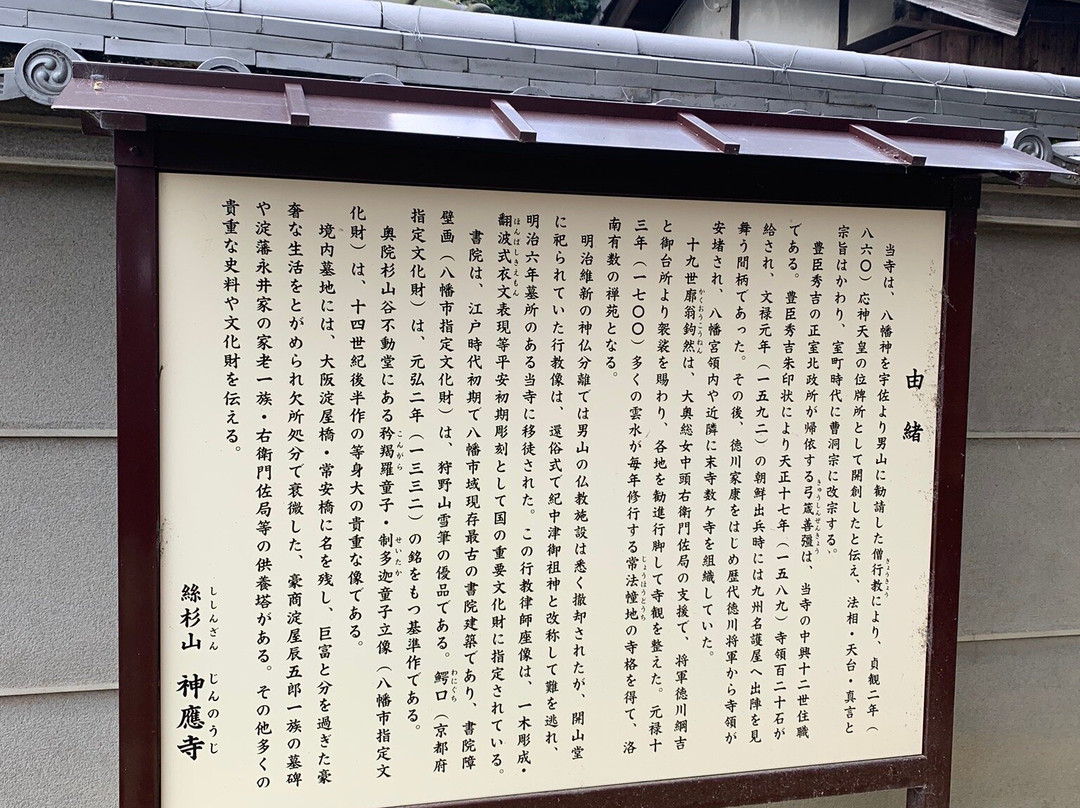 由緒
当寺は、八幡神を宇佐より男山に勧請した僧行教により、貞観二年（
八六〇）応神天皇の位牌所として開創したと伝え、法相・天台・真言と
宗旨はかわり、室町時代に曹洞宗に改宗する。
豊臣秀吉の正室北政所が帰依する弓箴善彊は、当寺の中興十二世住職
である。豊臣秀吉朱印状により天正十七年（一五八九）寺領百二十石が
給され、文禄元年（一五九二）の朝鮮出兵時には九州名護屋へ出陣を見
舞う間柄であった。その後、徳川家康をはじめ歴代徳川将軍から寺領が
安堵され、八幡宮領内や近隣に末寺数ケ寺を組織していた。
十九世廓翁鉤然は、大奥総女中頭右衛門佐局の支援で、将軍徳川綱吉
と御台所より袈裟を賜わり、各地を勧進行脚して寺観を整えた。元禄十
三年（一七〇〇）多くの雲水が毎年修行する常法幢地の寺格を得て、洛
南有数の禅苑となる。
明治維新の神仏分離では男山の仏教施設は悉く撤却されたが、開山堂
に祀られていた行教像は、還俗式で紀中津御祖神と改称して難を逃れ、
明治六年墓所のある当寺に移徒された。この行教律師座像は、一木彫成・
翻波式衣文表現等平安初期彫刻として国の重要文化財に指定されている。
書院は、江戸時代初期で八幡市域現存最古の書院建築であり、書院障
壁画（八幡市指定文化財）は、狩野山雪筆の優品である。鰐口（京都府
指定文化財）は、元弘二年（一三三二）の銘をもつ基準作である。
奥院杉山谷不動堂にある矜羯羅童子・制多迦童子立像（八幡市指定文
化財）は、十四世紀後半作の等身大の貴重な像である。
境内墓地には、大阪淀屋橋・常安橋に名を残し、巨富と分を過ぎた豪
奢な生活をとがめられ欠所処分で衰微した、豪商淀屋辰五郎一族の墓碑
や淀藩永井家の家老一族・右衛門佐局等の供養塔がある。その他多くの
貴重な史料や文化財を伝える。
絲杉山 神應寺
ししんざん じんのうじ
きょうきょう
きゅうしんぜんきょう
かくおうこうねん
じょうほうどうち
ほんぱしきえもん
わにぐち
こんがら
せいたか